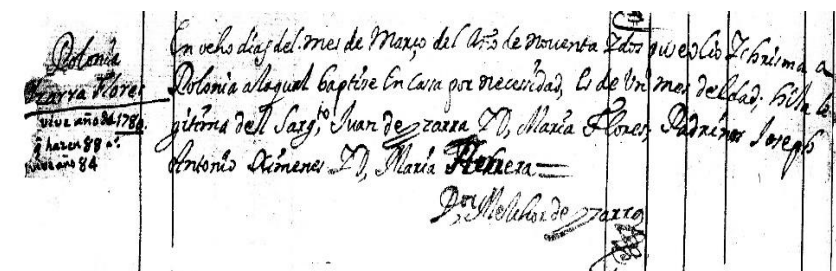 Polonia
Izarra Flores
vive año de 1780
q hazen 88 aˢ.
año 84
En ocho dias del mes de Março del Año de noventa Y dos puse olio Y chrisma a
Polonia a la qual baptise En Casa por necesidad, Es de Un mes de Edad; hija le
gitima del Sargᵗᵒ Juan de Yzarra Y D, María Flores; Padrinos Joseph
Antonio Ximenes Y D, Maria Herrera —
Dᵒʳ Melchor de Yzarra